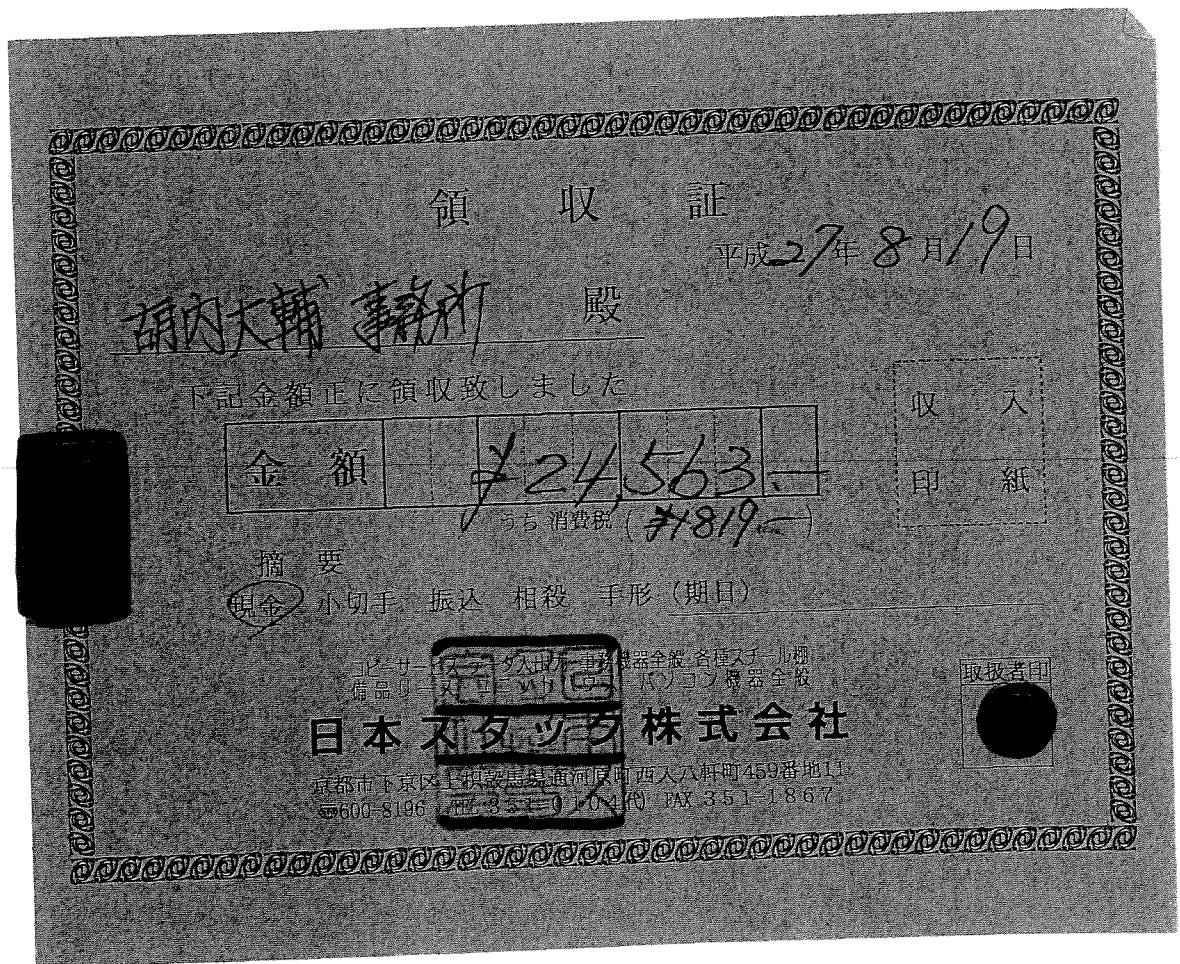 領収証
平成27年8月19日
胡内大輔 事務所 殿
下記金額正に領収致しました
収入
印紙
金額 ¥24,563.—
うち消費税(¥1819.—)
摘要
現金 小切手、振込 相殺 手形(期日)
コピーサービス データ入出力 事務機器全般 各種スチール棚
備品リース パソコン機器全般
取扱者印
日本スタッフ株式会社
京都市下京区 河原町西入八軒町459番地11
〒600-8196 TEL 351-0104代 FAX 351-1867